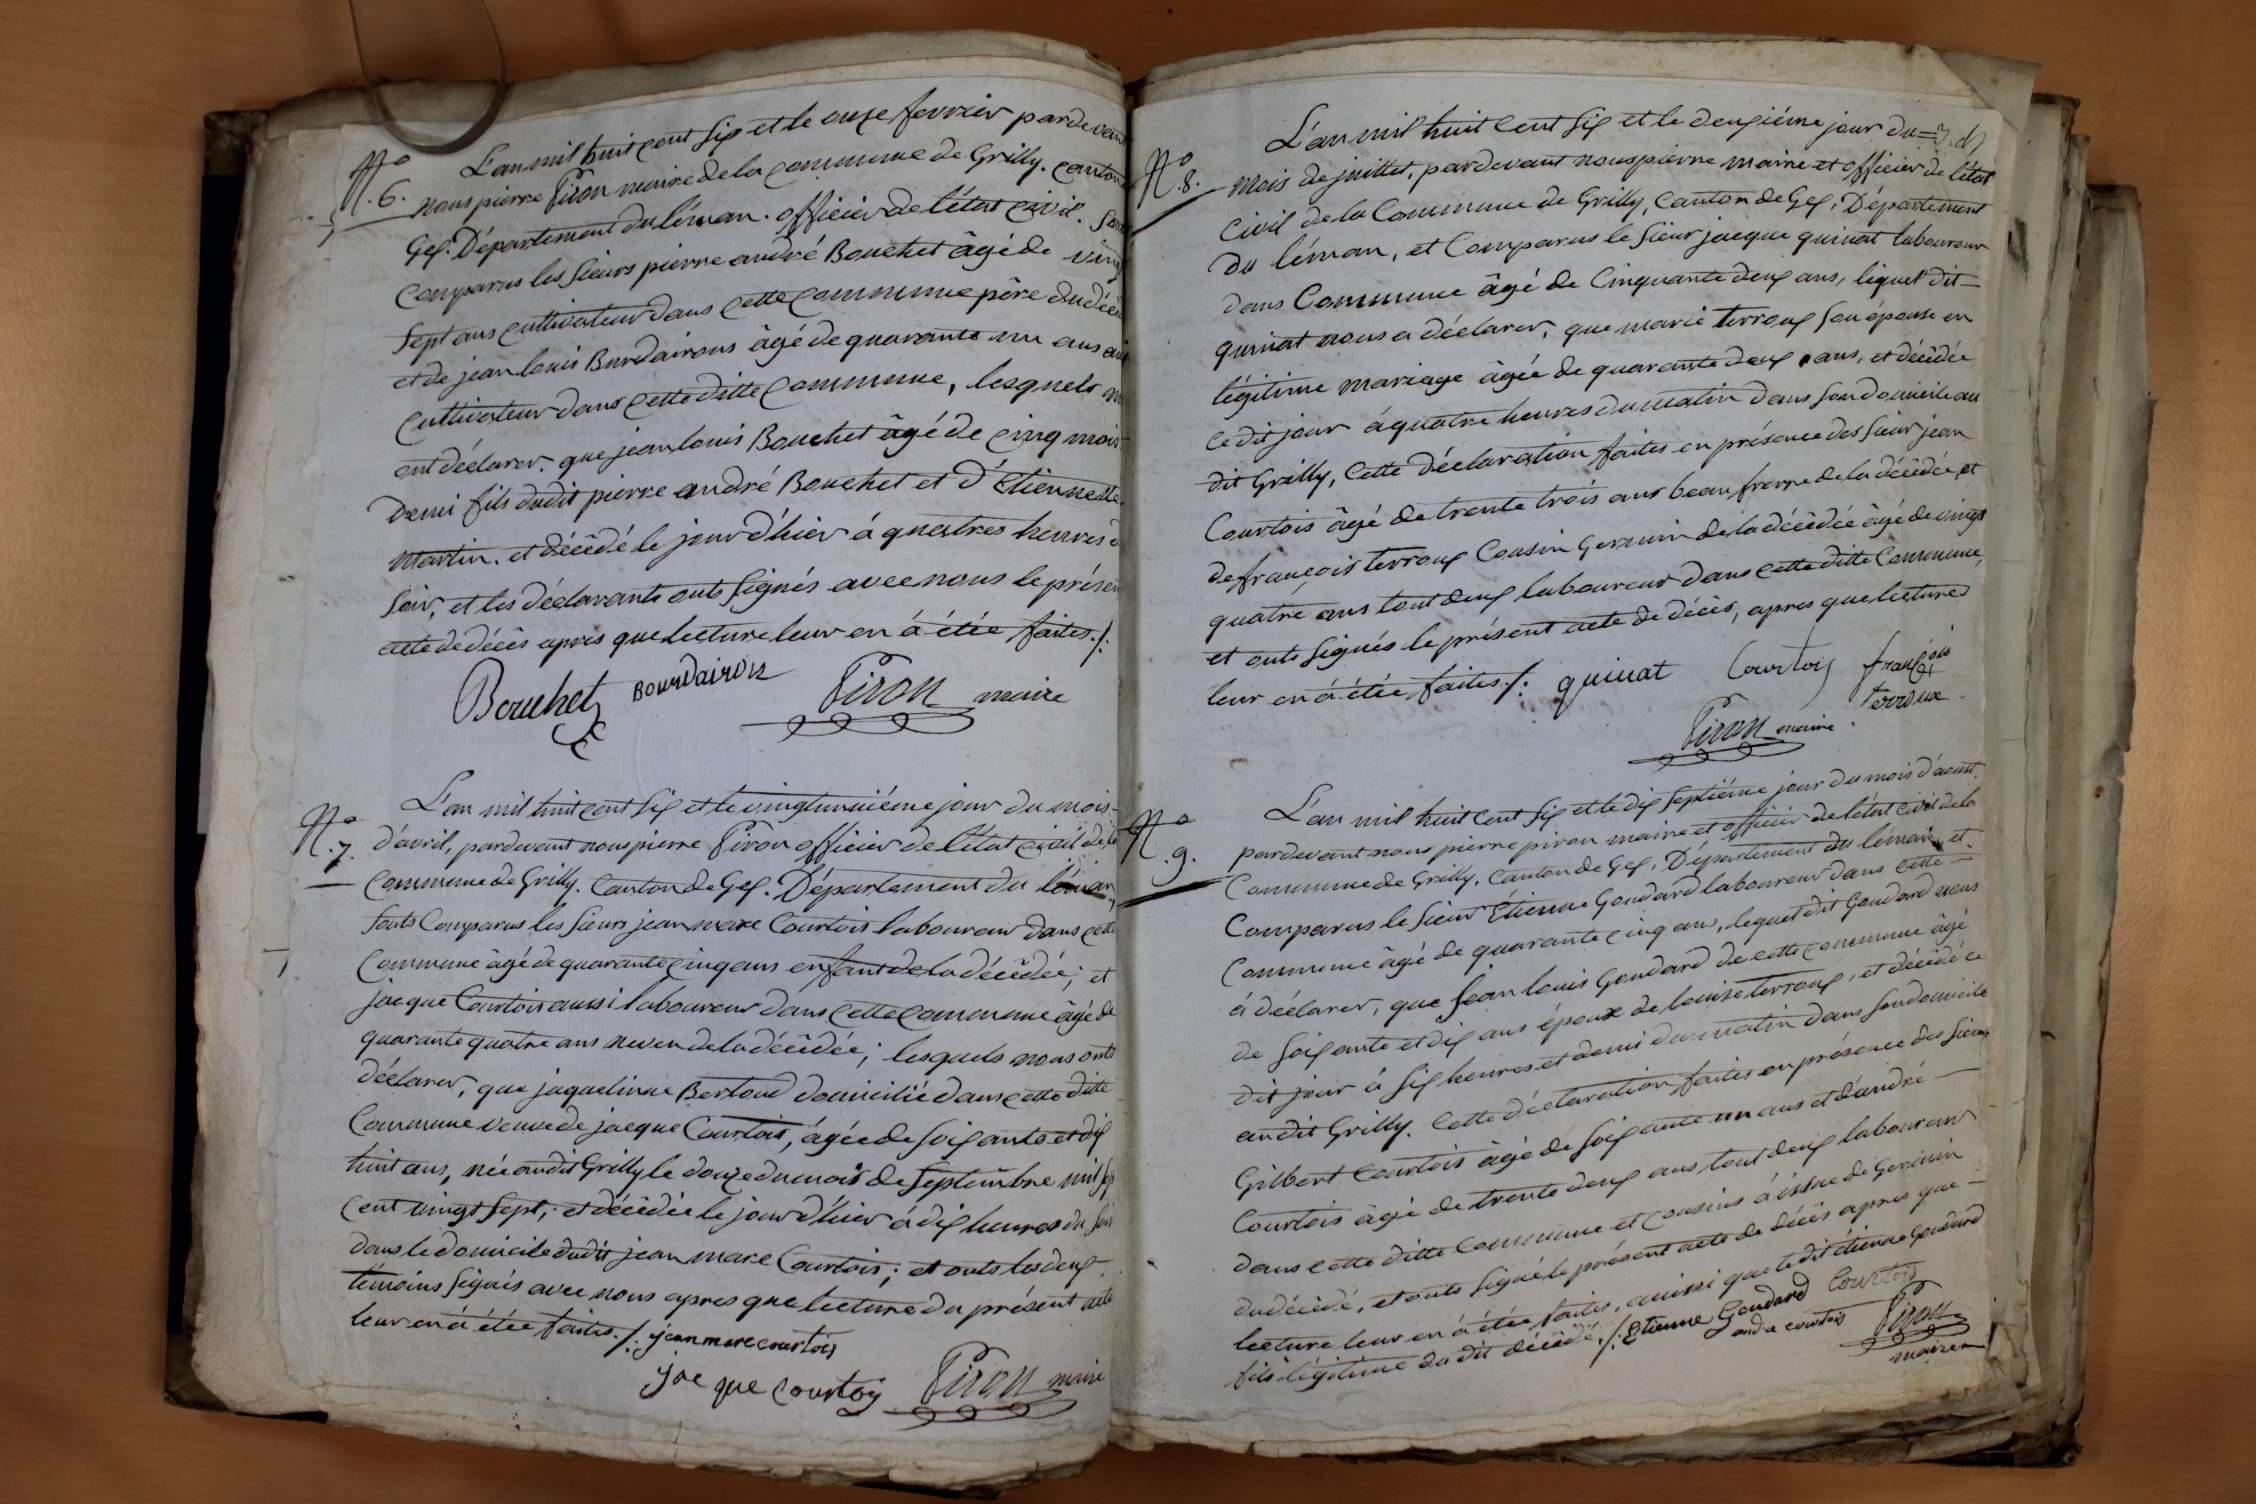 N.° 6.
L'an mil huit cent six et le onze fevrier pardevant
nous pierre Piron maire de la commune de Grilly. canton
Gex. Département du léman. officier de l'état civil. sont
comparus les sieurs pierre andré Bouchet âgé de vingt
sept ans cultivateur dans cette commune père du décédé
et de jean louis Burdairons âgé de quarante un ans aussi
cultivateur dans cette ditte commune, lesquels nous
ont déclarer. que jean louis Bouchet âgé de cinq mois
Demi fils dudit pierre andré Bouchet et d'Etiennette
Martin. et décédé le jour d'hier á quatres heures du
soir, et les déclarants onts signés avec nous le présent
acte de décès apres que lecture leur en á étée faites./.
Bouchet Bourdairon Piron maire
N.° 7.
L'an mil huit cent six et le vingtuniéme jour du mois
d'avril, pardevant nous pierre Piron officier de l'état civil de la
commune de Grilly. Canton de Gex. Département du léman,
sonts comparus les sieurs jean marc Courtois laboureur dans cette
Commune âgé de quarante cinq ans enfant de la décédée; et
jacque Courtois aussi laboureur dans cette commune âgé de
quarante quatre ans neveu de la décédée; lesquels nous onts
déclarer, que jaquelinne Bertoud domicilié dans cette ditte
Commune veuve de jacque Courtois, âgée de soixante et dix
huit ans, née au dit Grilly le douze du mois de septembre mil sept
cent vingt sept; et décédée le jour d'hier á dix heures du soir
dans le domicile dudit jean marc Courtois; et onts les deux
témoins signés avec nous apres que lecture du présent acte
leur en á étée faites./. jean marc courtois
jacque courtois Piron maire
N.° 8.
L'an mil huit cent six et le deuxiéme jour du
mois de juillet, pardevant nous pierre maire et officier de l'état
civil de la Commune de Grilly, canton de Gex, Département
du léman, et Comparus le sieur jacque quinat laboureur
dans Commune âgé de Cinquante deux ans, lequel dit
quinat nous a déclarer, que marie terroux son épouse en
légitime mariage âgée de quarante deux ans, et décédée
ce dit jour á quatre heures du matin dans son domicile au
dit Grilly, Cette déclaration faites en présence des sieur jean
Courtois âgé de trente trois ans beau frerre de la décédée et
de françois terroux Cousin germain de la décédée âgé de vingt
quatre ans tout deux laboureur dans cette ditte Commune,
et onts signés le présent acte de décès, apres que lecture
leur en á étée faites./. quinat Courtois françois
terroux
Piron maire
N.° 9.
L'an mil huit cent six et le dix septiéme jour du mois d'aoust
pardevant nous pierre piron maire et officier de l'état civil de la
Commune de Grilly, Canton de Gex, Département du léman, et
Comparus le sieur Etienne Goudard laboureur dans cette
Commune âgé de quarante cinq ans, lequel dit Goudard nous
á déclarer, que jean louis Goudard de cette commune âgé
de soixante et dix ans époux de louise terroux, et décédé ce
dit jour á six heures et demi du matin dans son domicile
au dit Grilly. Cette déclaration faites en présence des sieurs
Gilbert Courtois âgé de soixante un ans et d'andré
Courtois âgé de trente deux ans tout deux laboureur
dans cette ditte commune et cousins á issue de Germain
du décédé, et onts signé le présent acte de décès apres que
lecture leur en á étée faites, aussi que le dit étienne Goudard
fils légitime du dit décédé./. Etienne Goudard Courtois
Piron
maire